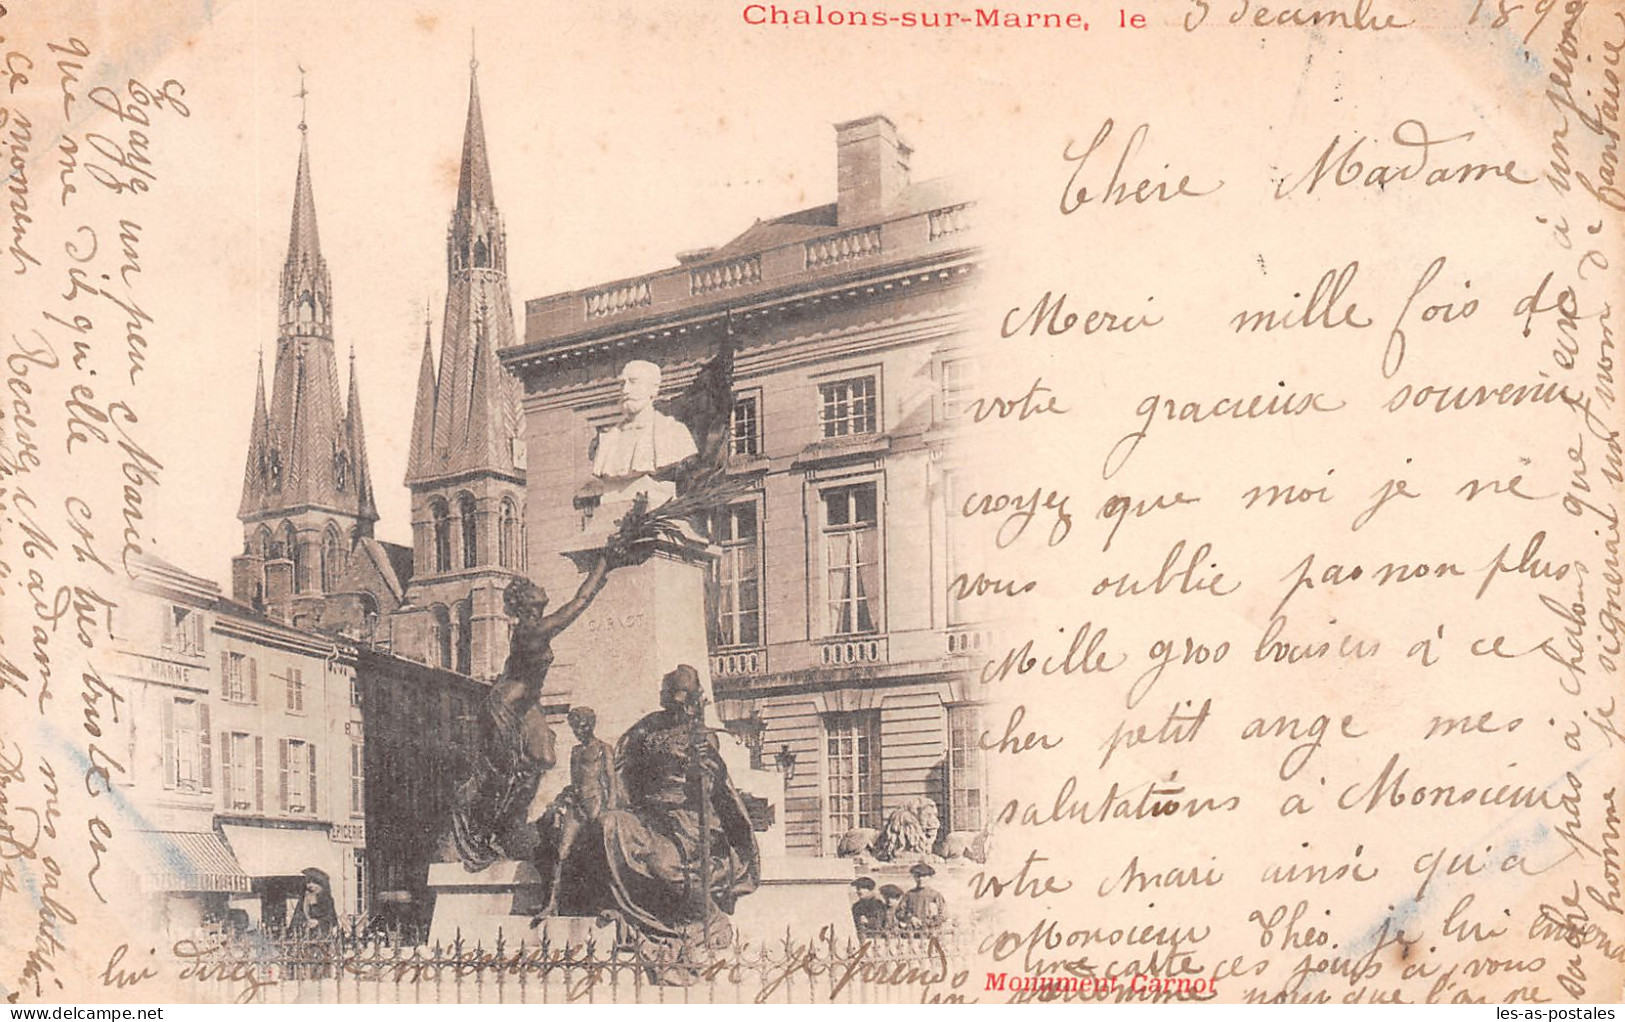 Chalons-sur-Marne, le 3 décembre 189
Chère Madame
Merci mille fois de
votre gracieux souvenir
croyez que moi je ne
vous oublie pas non plus
Mille gros baisers à ce
cher petit ange mes
salutations à Monsieur
votre Mari ainsi qu'a
Monsieur Théo. je lui
une carte ces jours ci, vous
lui direz si je prends
un nomme pour que l'on ne
sache pas à chalons que j'ecri à un jeune
homme je signerais un nom de fantaisie
Egaye un peu Marie
que me dit qu'elle est tres triste en
ce moment Recevez Madame mes salutations
CARNOT
MARNE
EPICERIE
Monument Carnot
les-as-postales